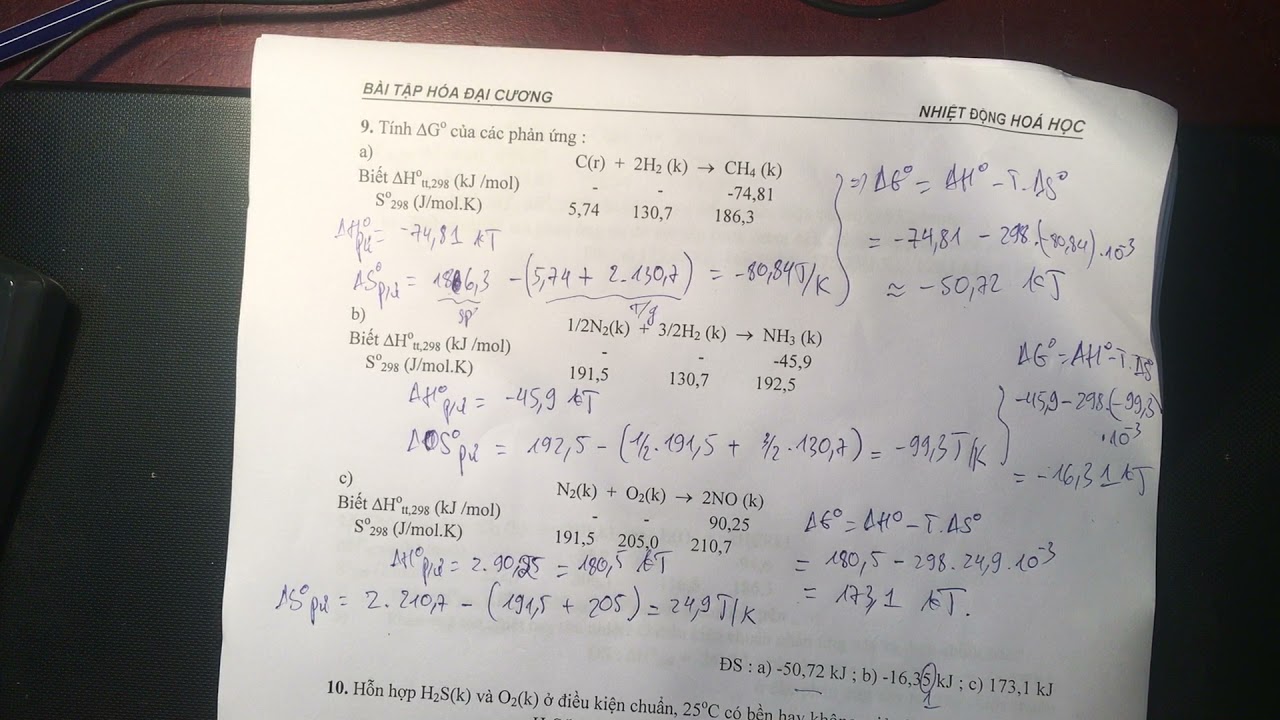 BÀI TẬP HÓA ĐẠI CƯƠNG
NHIỆT ĐỘNG HOÁ HỌC
9. Tính ΔGº của các phản ứng :
a)
C(r) + 2H₂ (k) → CH₄ (k)
Biết ΔHºtt,298 (kJ /mol) - - -74,81
Sº298 (J/mol.K) 5,74 130,7 186,3
ΔHºpư = -74,81 kJ
ΔSºpư = 186,3 - (5,74 + 2.130,7) = -80,84 J/K
sp
T/g
⇒ ΔGº = ΔHº - T.ΔSº
= -74,81 - 298.(-80,84).10⁻³
≈ -50,72 kJ
b)
1/2N₂(k) + 3/2H₂ (k) → NH₃ (k)
Biết ΔHºtt,298 (kJ /mol) - - -45,9
Sº298 (J/mol.K) 191,5 130,7 192,5
ΔHºpư = -45,9 kJ
ΔSºpư = 192,5 - (1/2.191,5 + 3/2.130,7) = -99,3 J/K
ΔGº = ΔHº - T.ΔSº
-45,9 - 298.(-99,3)
.10⁻³
= -16,31 kJ
c)
N₂(k) + O₂(k) → 2NO (k)
Biết ΔHºtt,298 (kJ /mol) - - 90,25
Sº298 (J/mol.K) 191,5 205,0 210,7
ΔHºpư = 2.90,25 = 180,5 kJ
ΔSºpư = 2.210,7 - (191,5 + 205) = 24,9 J/K
ΔGº = ΔHº - T.ΔSº
= 180,5 - 298.24,9.10⁻³
= 173,1 kJ.
ĐS : a) -50,72 kJ ; b) -16,35 kJ ; c) 173,1 kJ
1
10. Hỗn hợp H₂S(k) và O₂(k) ở điều kiện chuẩn, 25ºC có bền hay không